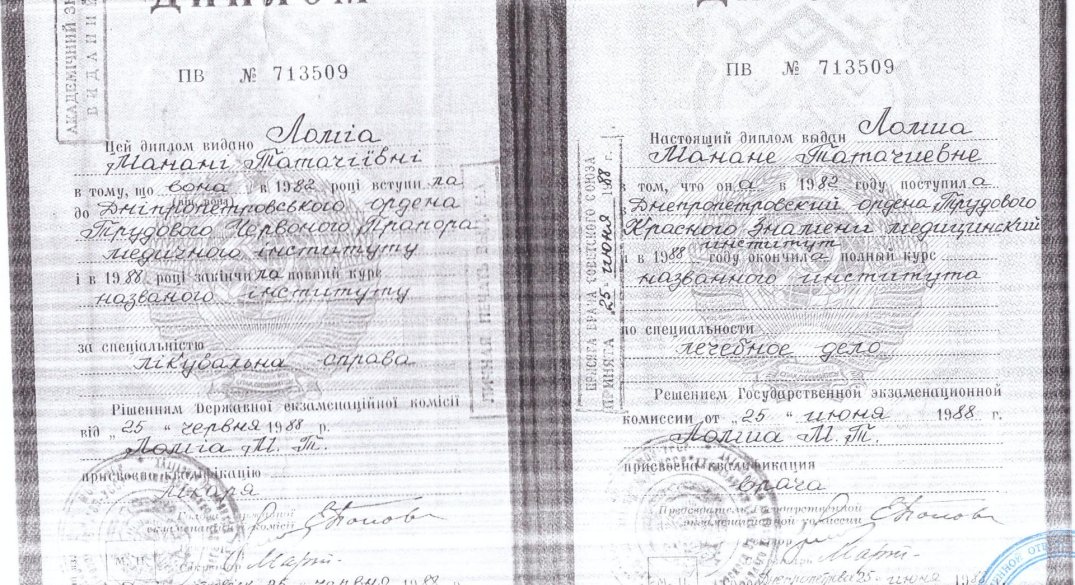 ДИПЛОМ
АКАДЕМІЧНИЙ ЗН
ВИДАНИЙ
ПВ № 713509
Цей диплом видано Ломіа
Манані Татачіївні
в тому, що вона в 1982 році вступила
до Дніпропетровського ордена
Трудового Червоного Прапора
медичного інституту
і в 1988 році закінчила повний курс
названого інституту
за спеціальністю
лікувальна справа
Рішенням Державної екзаменаційної комісії
від „25“ червня 1988 р.
Ломіа М. Т.
присвоєна кваліфікацію
лікаря
екзаменаційної комісії
25 червня 1988
ЛИЧНАЯ ПЕЧАТЬ ВРАЧА
ДИПЛОМ
ПВ № 713509
Настоящий диплом выдан Ломиа
Манане Татачиевне
в том, что она в 1982 году поступила
в Днепропетровский ордена Трудового
Красного Знамени медицинский
институт
и в 1988 году окончила полный курс
названного института
по специальности
лечебное дело
Решением Государственной экзаменационной
комиссии от „25“ июня 1988 г.
Ломиа М. Т.
присвоена квалификация
врача
Председатель Государственной
экзаменационной комиссии
25 июня 1988
ПРИСЯГА ВРАЧА СОВЕТСКОГО СОЮЗА
ПРИНЯТА „25“ июня 1988 г.